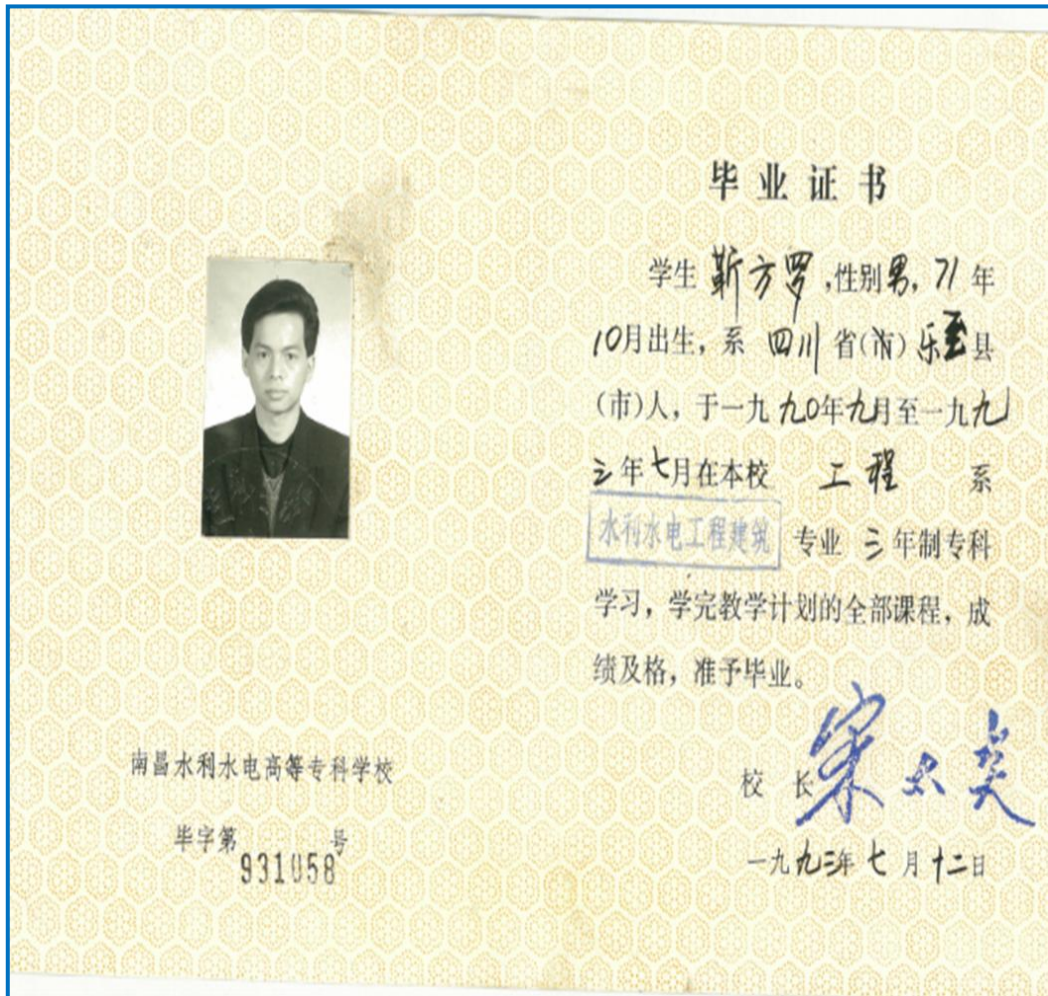 毕业证书
学生 靳方罗,性别男,71年
10月出生,系 四川 省(市)乐至县
(市)人,于一九九0年九月至一九九
三年七月在本校 工程 系
水利水电工程建筑 专业 三年制专科
学习,学完教学计划的全部课程,成
绩及格,准予毕业。
校 长
一九九三年 七 月 十二日
南昌水利水电高等专科学校
毕字第 号
931058